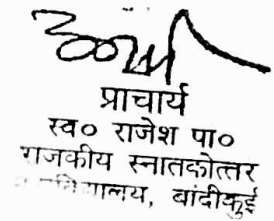 प्राचार्य
स्व० राजेश पा०
राजकीय स्नातकोत्तर
बांदीकुई